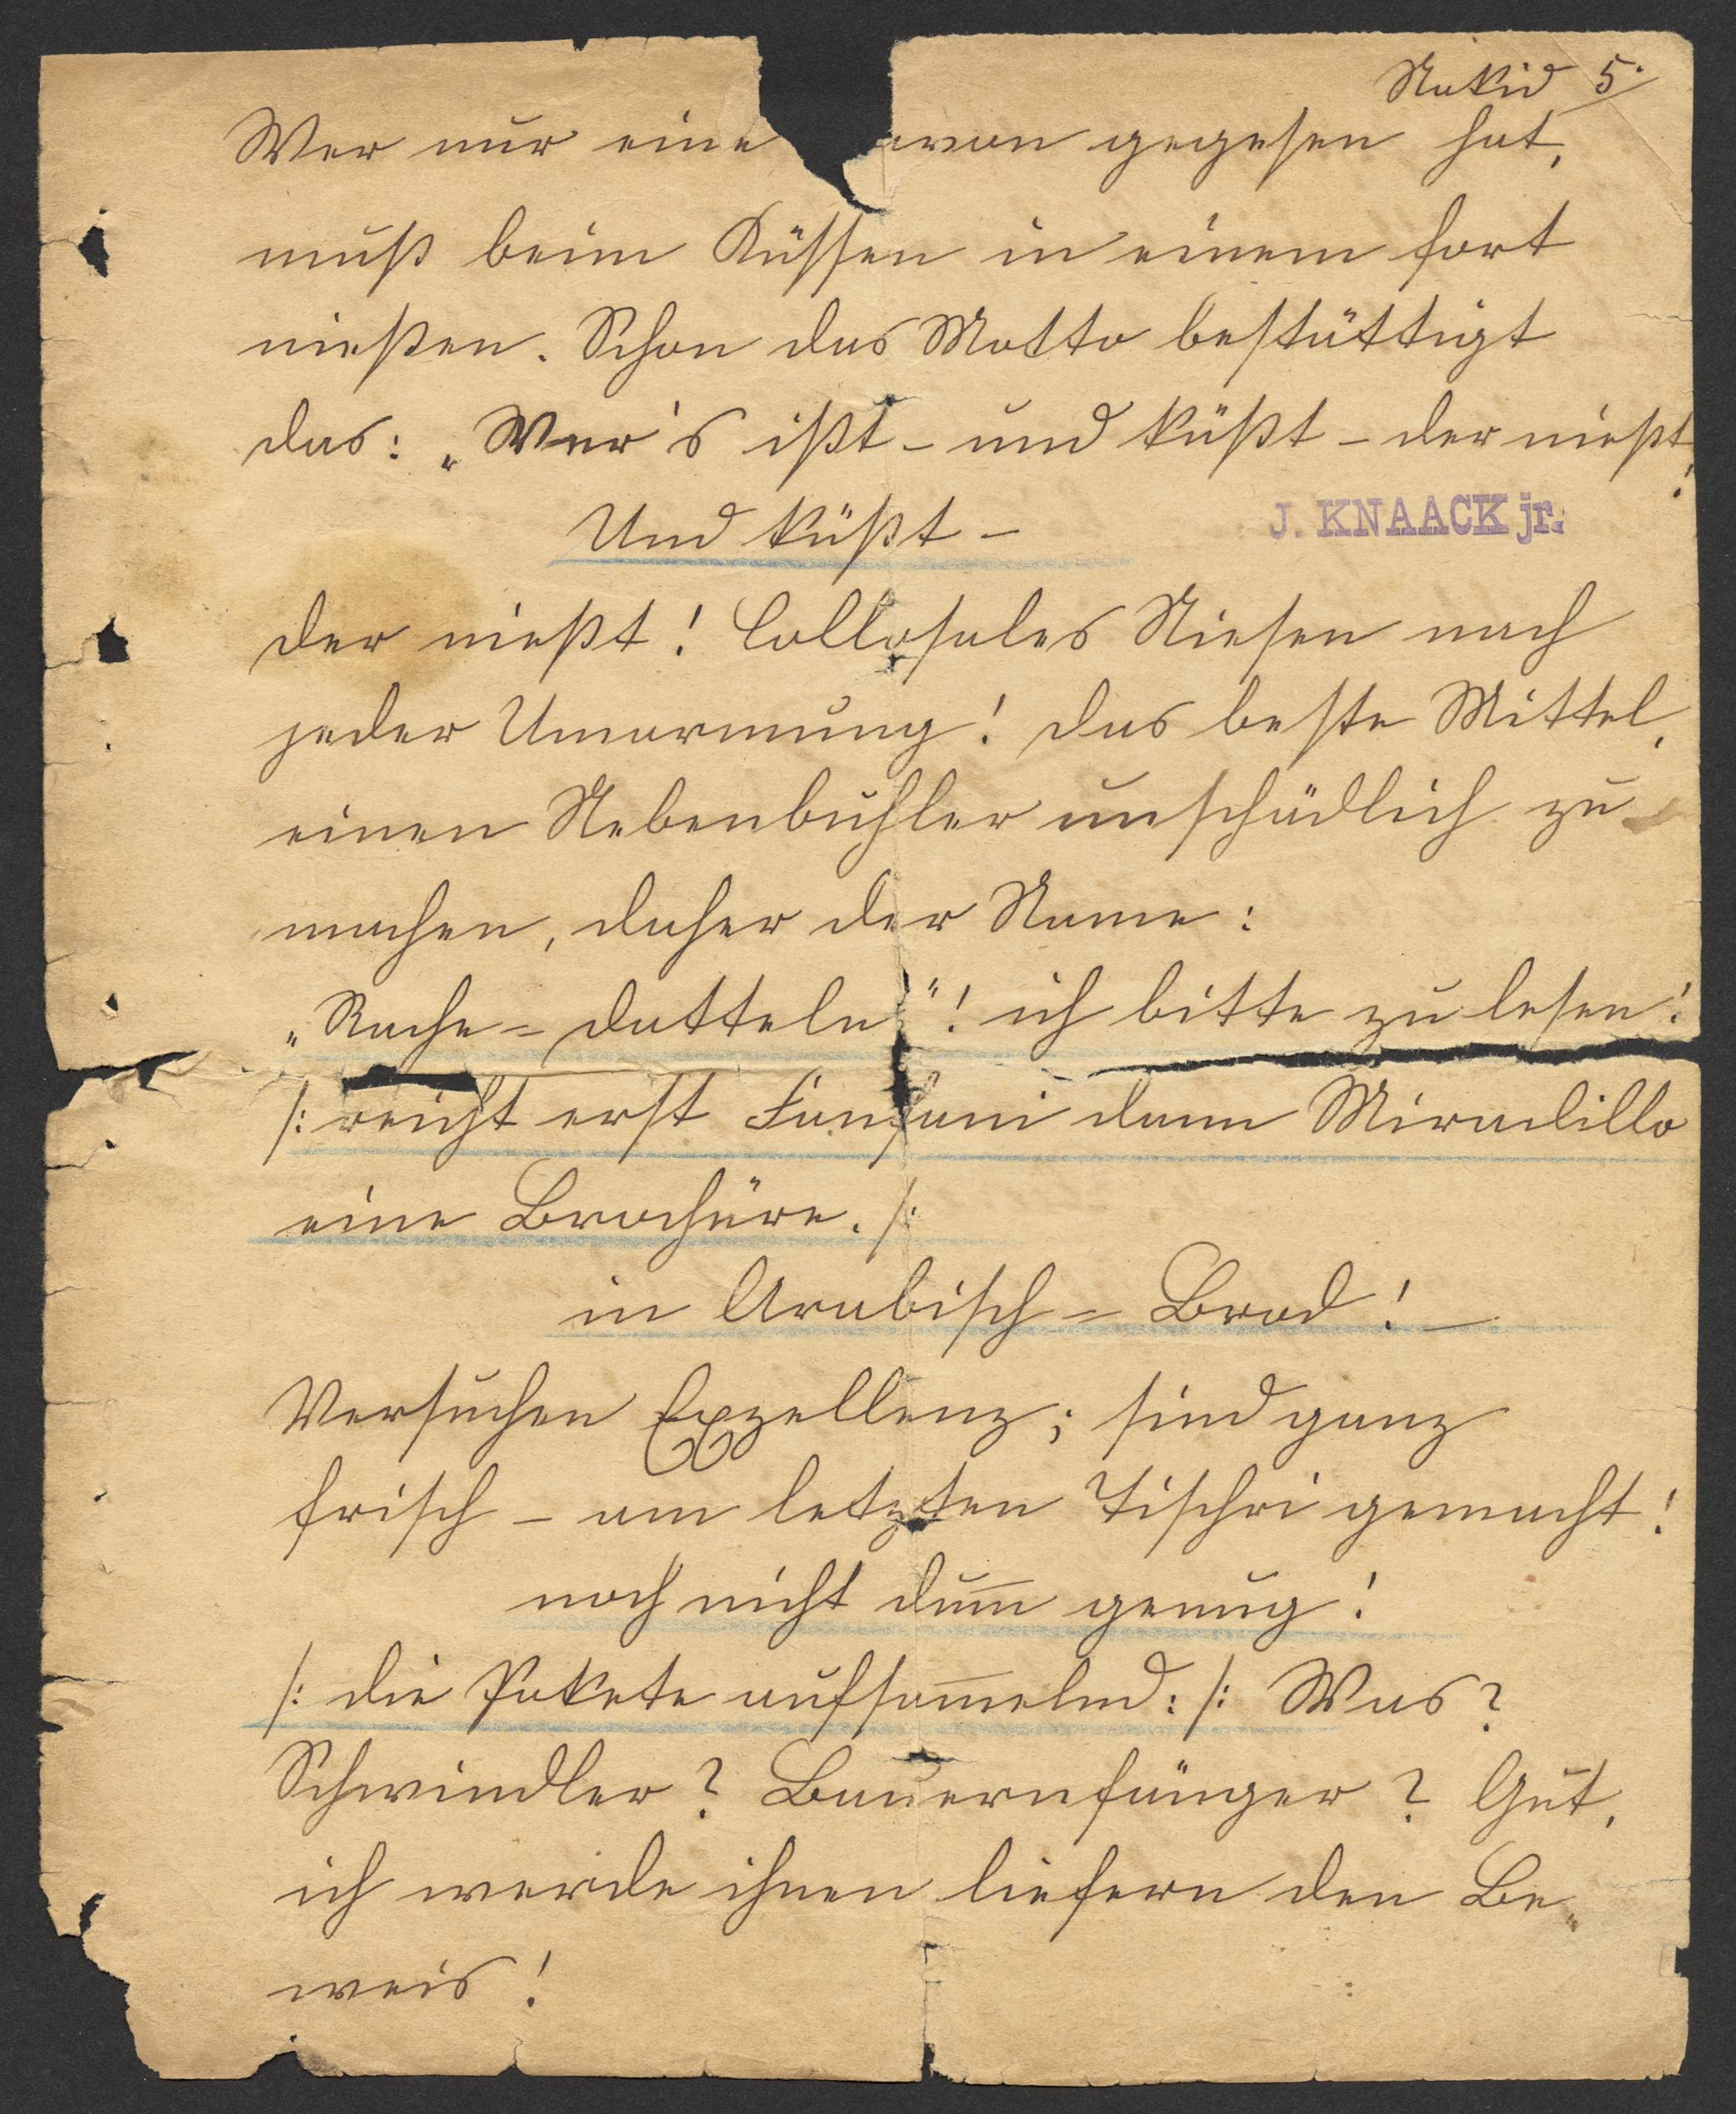 Nakid 5.
Wer nur eine avon gegesen hat,
muß beim Küssen in einem fort
nießen. Schon das Motto bestättigt
das: „Wer's ißt – und küßt – der nießt!
Und küßt –
J. KNAACK jr.
der nießt! Collosales Niesen nach
jeder Umarmung! das beste Mittel,
einen Nebenbuhler unschädlich zu
machen, daher der Name:
„Rache = datteln"! ich bitte zu lesen!
/: reicht erst Fanfani dann Miradillo
eine Brochüre. /:
in Arabisch = Brod! –
Versuchen Exzellenz; sind ganz
frisch – am letzten Tischri gemacht!
noch nicht dum̅ genug!
/: die Pakete aufsam̅elnd: /: Was?
Schwindler? Bauernfänger? Gut,
ich werde ihnen liefern den Be„
weis!